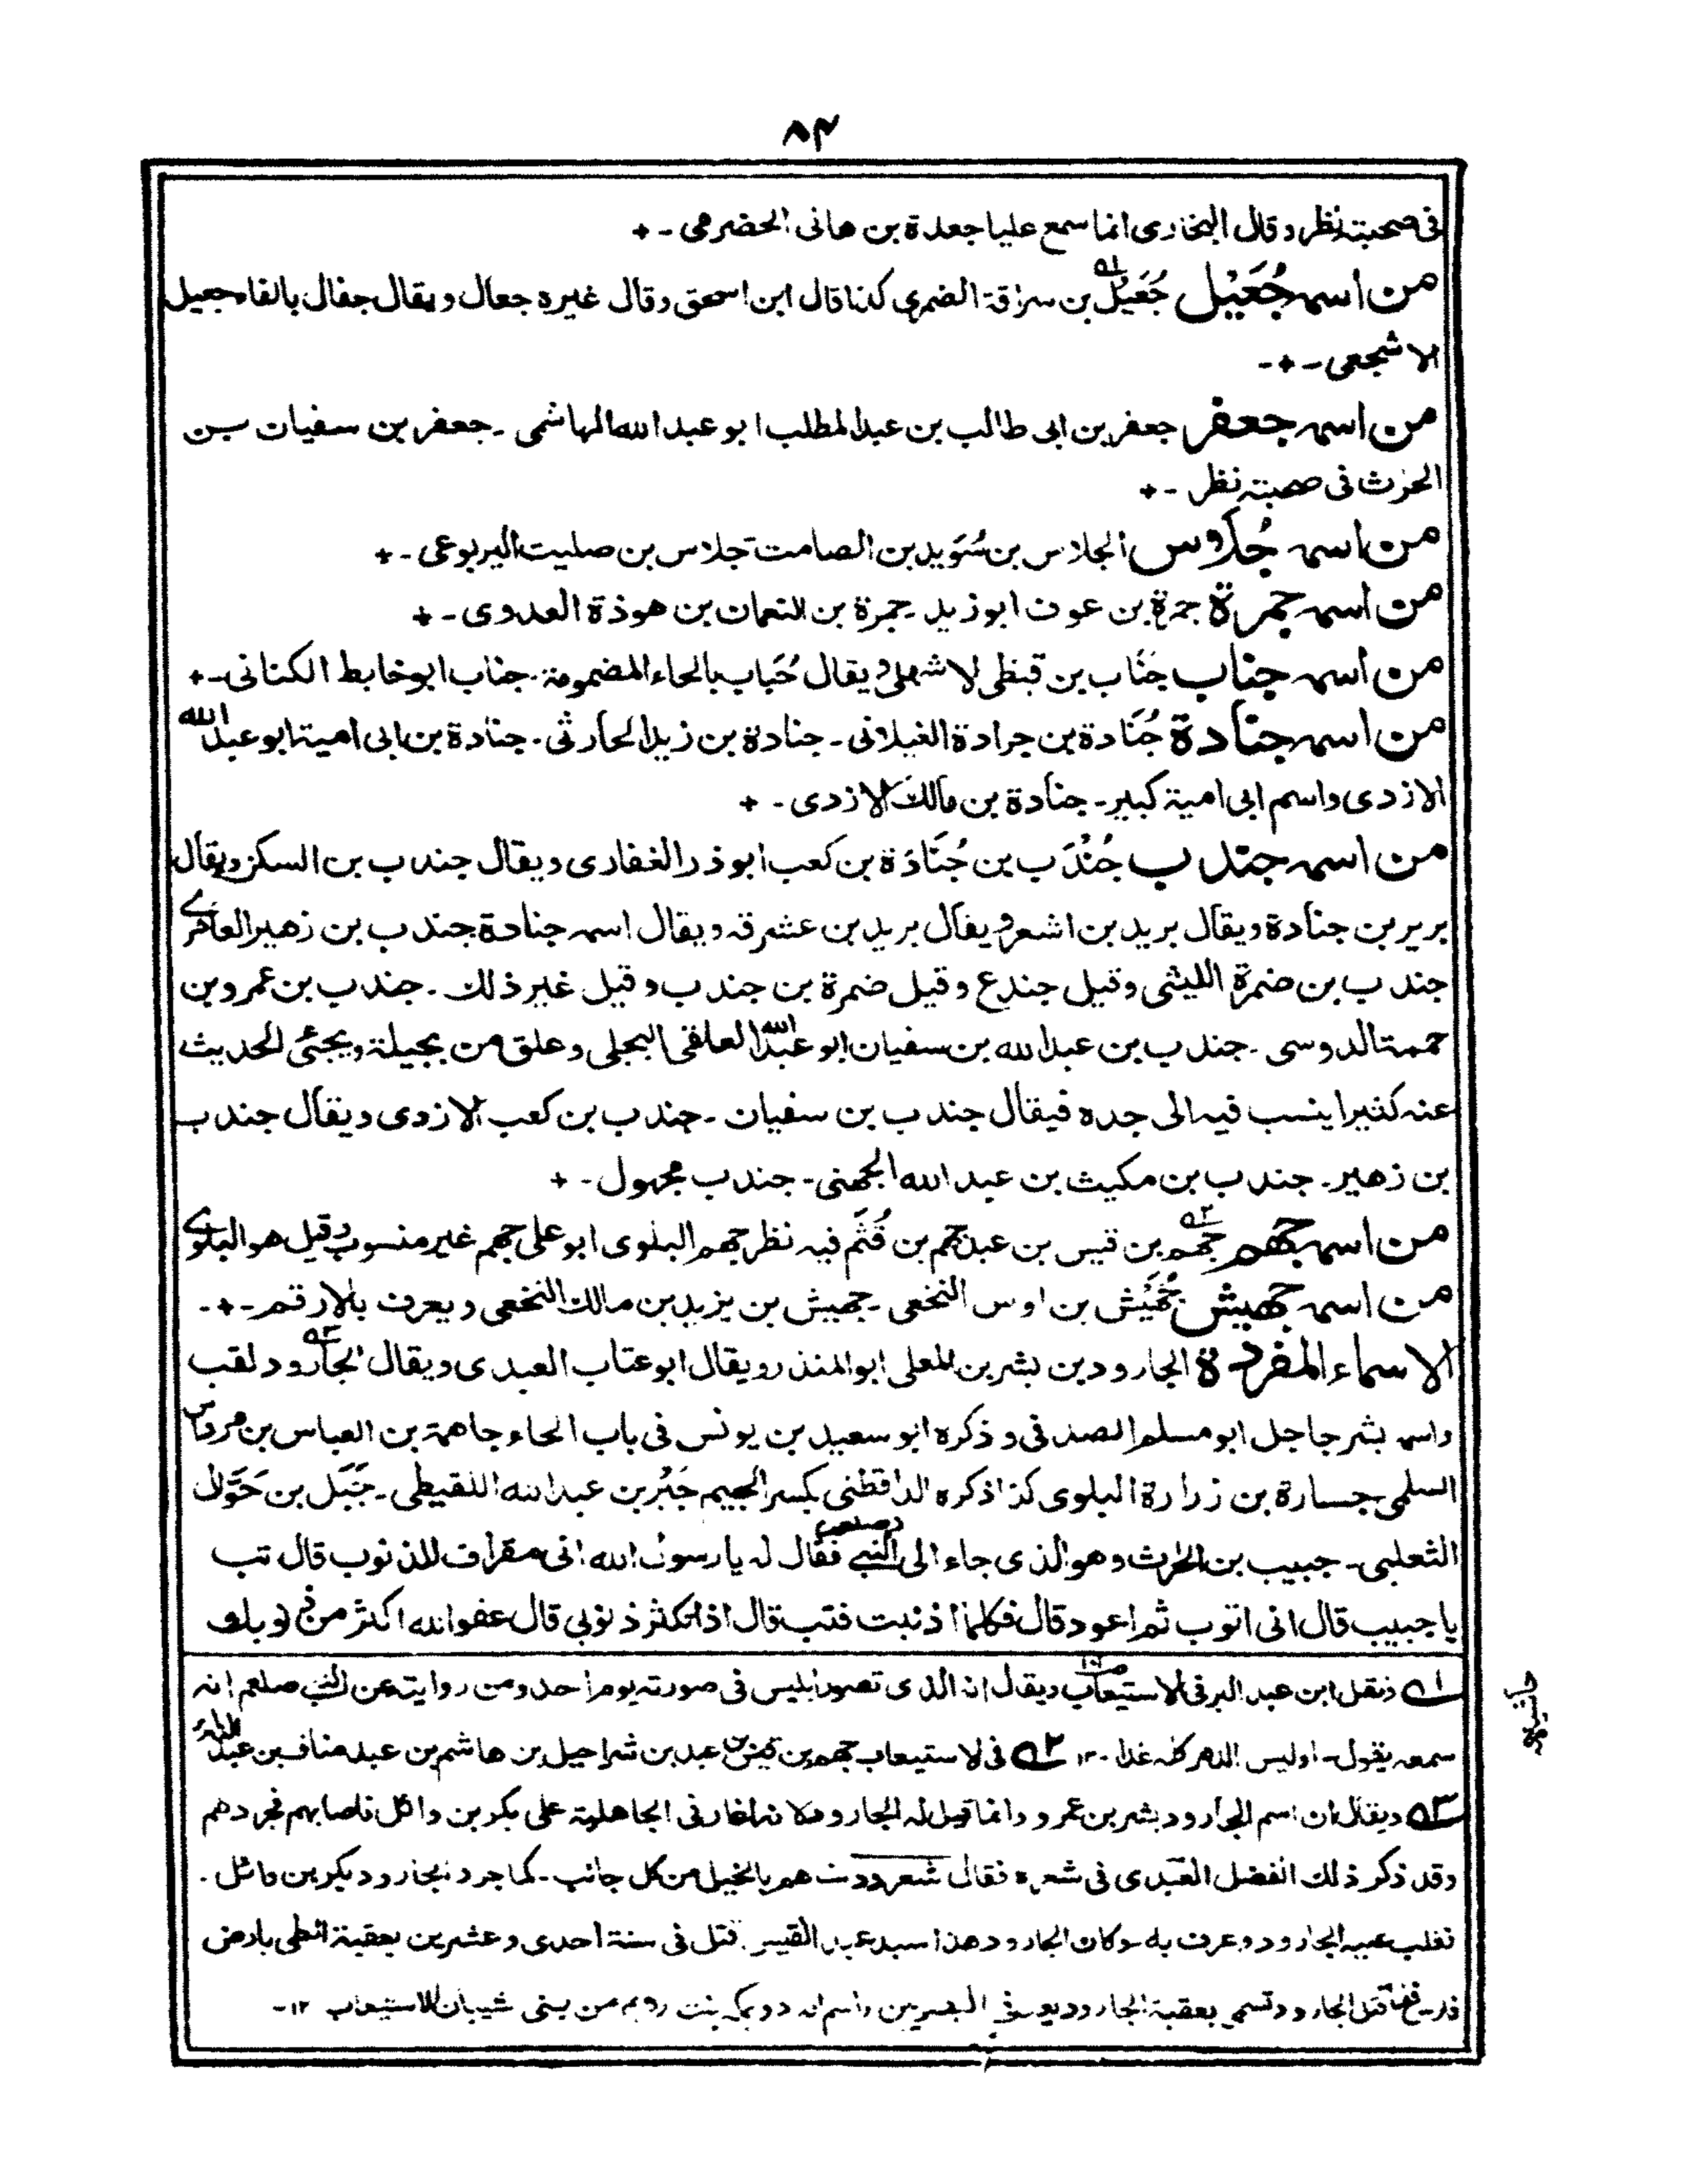 ۸۴
فى صحبته نظر وقال البخارى انما سمع عليا جعدة بن هانى الحضرمى - +
من اسمه جُعَيْل جُعَيْل ۱ه بن سراقة الضمرى كذا قال ابن اسحق وقال غيره جعال ويقال جفال بالفاء جعيل
الاشجعى - + -
من اسمه جعفر جعفر بن ابى طالب بن عبد المطلب ابو عبد الله الهاشمى - جعفر بن سفيان بن
الحرث فى صحبته نظر - +
من اسمه جُلاوس الجلاس بن سُوَيد بن الصامت جلاس بن صليت اليربوعى - +
من اسمه جمرة جمرة بن عوف ابوزيد - جمرة بن النعمان بن هوذة العدوى - +
من اسمه جناب جَنَاب بن قبظى الاشهلى ويقال حُبَاب بالحاء المضمومة - جناب ابوخابط الكنانى - +
من اسمه جنادة جُنَادة بن جرادة الغيلانى - جنادة بن زيد الحارثى - جنادة بن ابى امية ابو عبد الله
الازدى واسم ابى امية كبير - جنادة بن مالك الازدى - +
من اسمه جندب جُنْدَب بن جُنَادَة بن كعب ابوذر الغفارى ويقال جندب بن السكن ويقال
برير بن جنادة ويقال بريد بن اشعر ويقال بريد بن عشرقه ويقال اسمه جنادة جندب بن زهير العامرى
جندب بن ضمرة الليثى وقيل جندع وقيل ضمرة بن جندب وقيل غير ذلك - جندب بن عمرو بن
حممة الدوسى - جندب بن عبد الله بن سفيان ابو عبد الله العلقى البجلى وعلق من بجيلة ويجئى الحديث
عنه كثيرا ينسب فيه الى جده فيقال جندب بن سفيان - جندب بن كعب الازدى ويقال جندب
بن زهير - جندب بن مكيث بن عبد الله الجهنى - جندب مجهول - +
من اسمه جهم جهم ۲ه بن قيس بن عبد جهم بن قُثَم فيه نظر جهم البلوى ابوعلى جهم غير منسوب وقيل هو البلوى
من اسمه جهيش جُهَيْش بن اوس النخعى - جهيش بن يزيد بن مالك النخعى ويعرف بالارقم - + -
الاسماء المفردة الجارود بن بشر بن المعلى ابوالمنذر ويقال ابوعتاب العبدى ويقال الجارود ۳ه لقب
واسمه بشر جاجل ابومسلم الصدفى وذكره ابوسعيد بن يونس فى باب الحاء جاهمة بن العباس بن مرداس
السلمى جسارة بن زرارة البلوى كذا ذكره الدارقطنى بكسر الجيم جَبْر بن عبد الله اللقيطى - جَبَل بن حَوَّال
الثعلبى - جبيب بن الحرث وهو الذى جاء الى النبى (صلعم) فقال له يا رسول الله انى مقراف للذنوب قال تب
يا جبيب قال انى اتوب ثم اعود قال فكلما اذنبت فتب قال اذا تكثر ذنوبى قال عفو الله اكثر من ذنوبك
۱ه ونقل ابن عبد البر فى الاستيعاب ويقال انه الذى تصور ابليس فى صورته يوم احد ومن روايته عن النبى صلعم انه
سمعه يقول - اوليس الدهر كله غدا - ۱۲ ۲ه فى الاستيعاب جهم بن قيس بن عبد بن شراحيل بن هاشم بن عبد مناف بن عبد الدار
۳ه ويقال ان اسم الجارود بشر بن عمرو وانما قيل له الجارود لانه اغار فى الجاهلية على بكر بن وائل فاصابهم فجردهم
وقد ذكر ذلك المفضل العبدى فى شعره فقال شعر ودسناهم بالخيل من كل جانب - كما جرد الجارود بكر بن وائل -
فغلب عليه الجارود وعرف به وكان الجارود هذا سيد عبد القيس قتل فى سنة احدى وعشرين بعقبة الطى بارض
قتل الجارود وتسمى بعقبة الجارود يعد فى البصريين واسم امه دريمكه بنت رويم من بنى شيبان الاستيعاب ۱۲ -
حاشيه